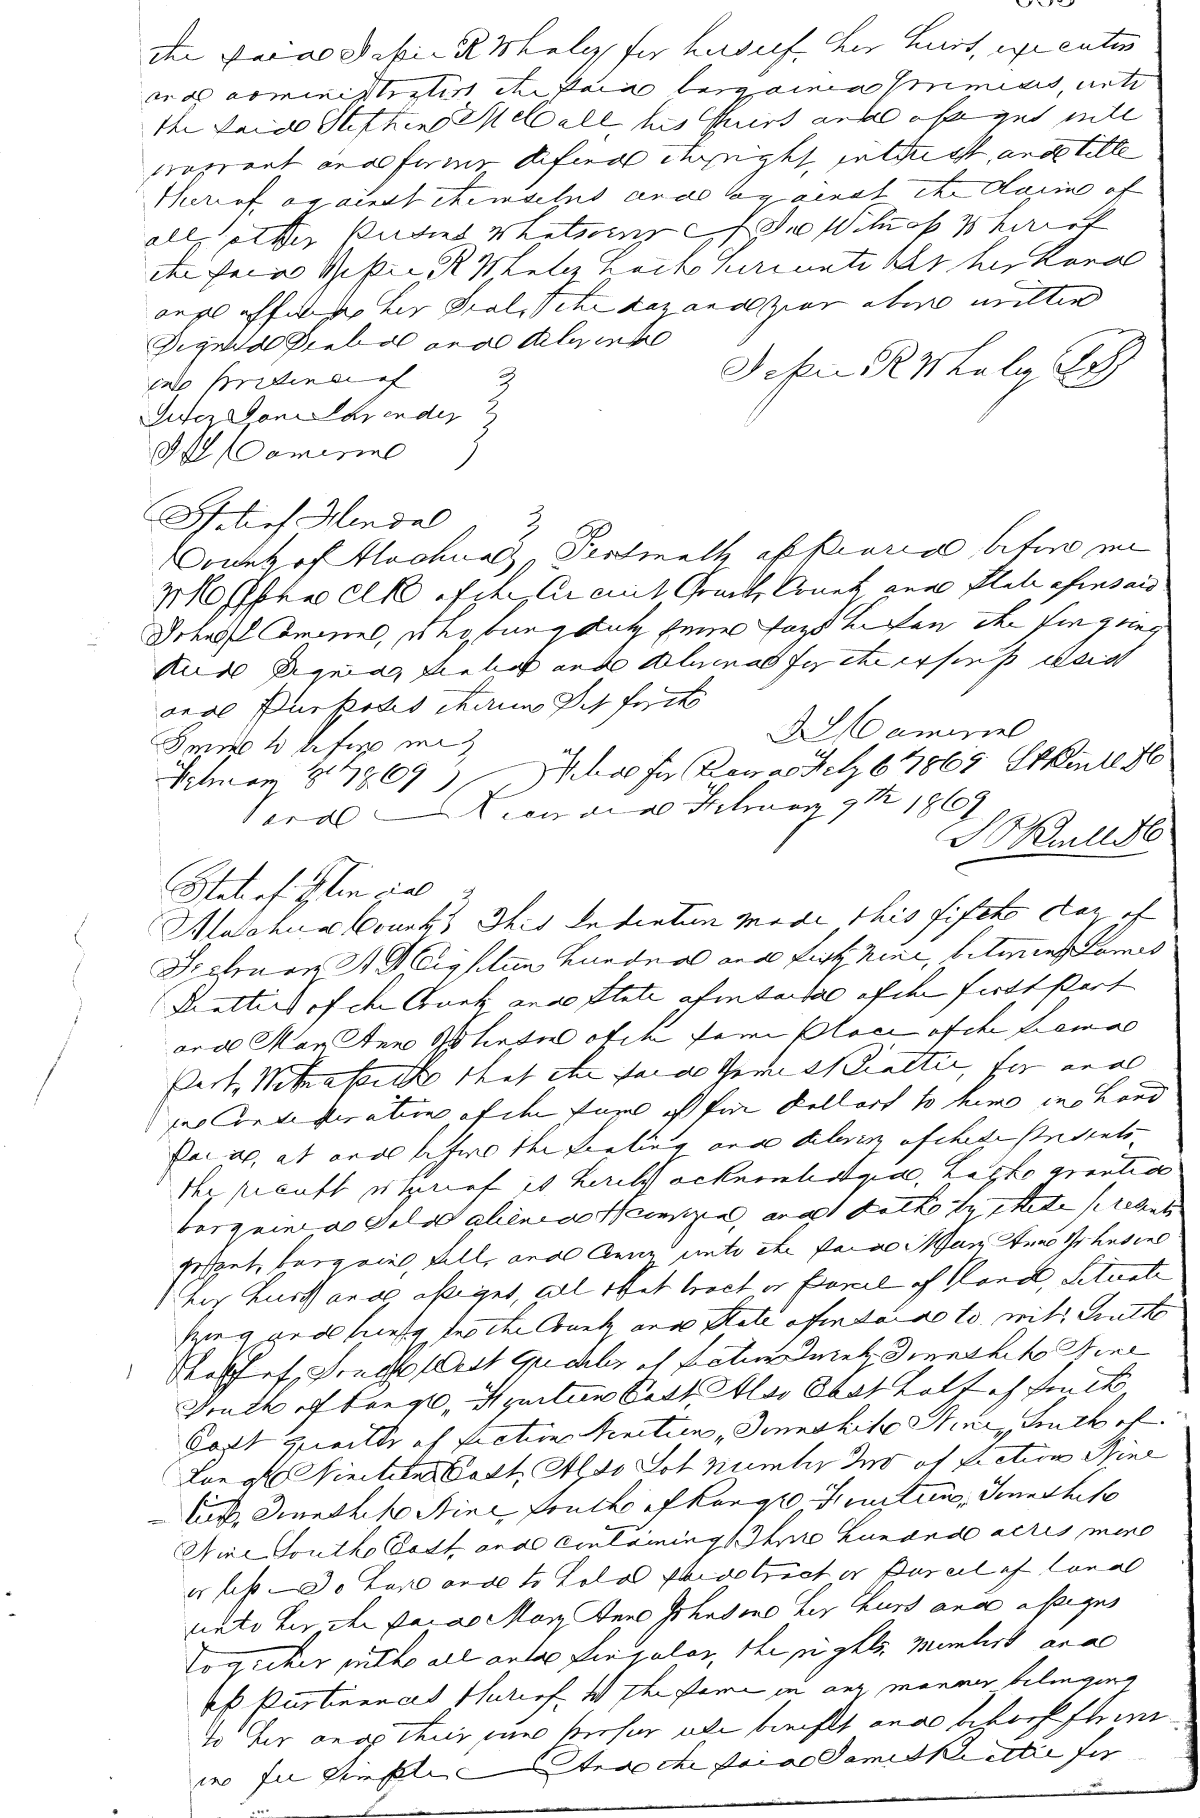 the said Jessie R Whaley for herself, her heirs, executors
and administrators the said bargained premises, unto
the said Stephen McCall, his heirs and assigns will
warrant and forever defend the right, interest, and title
thereof, against themselves and against the claim of
all other persons whatsoever In Witness Whereof
the said Jessie R Whaley hath hereunto set her hand
and affixed her Seal, the day and year above written
Signed Sealed and delivered
in presence of
Jessie R Whaley
Jane Lavender
J L Cameron
State of Florida
County of Alachua Personally appeared before me
Clk of the Circuit Court, County and State aforesaid
John L Cameron, who being duly sworn says he saw the foregoing
deed Signed, sealed and delivered for the express uses
and Purposes therein Set forth
J L Cameron
Sworn to before me
February 8th 1869 Filed for Record Feby 6th 1869
and Recorded February 9th 1869
State of Florida
Alachua County This Indenture made this fifth day of
February A D Eighteen hundred and sixty nine, between James
Beattie of the County and State aforesaid of the first Part
and Mary Anne Johnson of the same place of the second
Part, Witnesseth that the said James Beattie, for and
in Consideration of the sum of five dollars to him in hand
paid, at and before the sealing and delivery of these presents
the receipt whereof is hereby acknowledged, hath granted
bargained Sold aliened & conveyed, and doth by these presents
grant, bargain, sell, and convey unto the said Mary Anne Johnson
her heirs and assigns, all that tract or parcel of land, situate
lying and being in the County and State aforesaid to wit: South
half of, South West quarter of section Twenty Township Nine
South of range, East Also East half of South
East quarter of section Nineteen, Township Nine, South of
range Nineteen East, Also Lot number Two of section Nine
teen, Township Nine, South of Range Township
Nine South East, and containing Three hundred acres more
or less To have and to hold said tract or parcel of land
unto her the said Mary Anne Johnson her heirs and assigns
together with all and singular, the rights, members and
appurtenances thereof, to the same in any manner belonging
to her and their own proper use benefit and behoof forever
in fee simple And the said James Beattie for